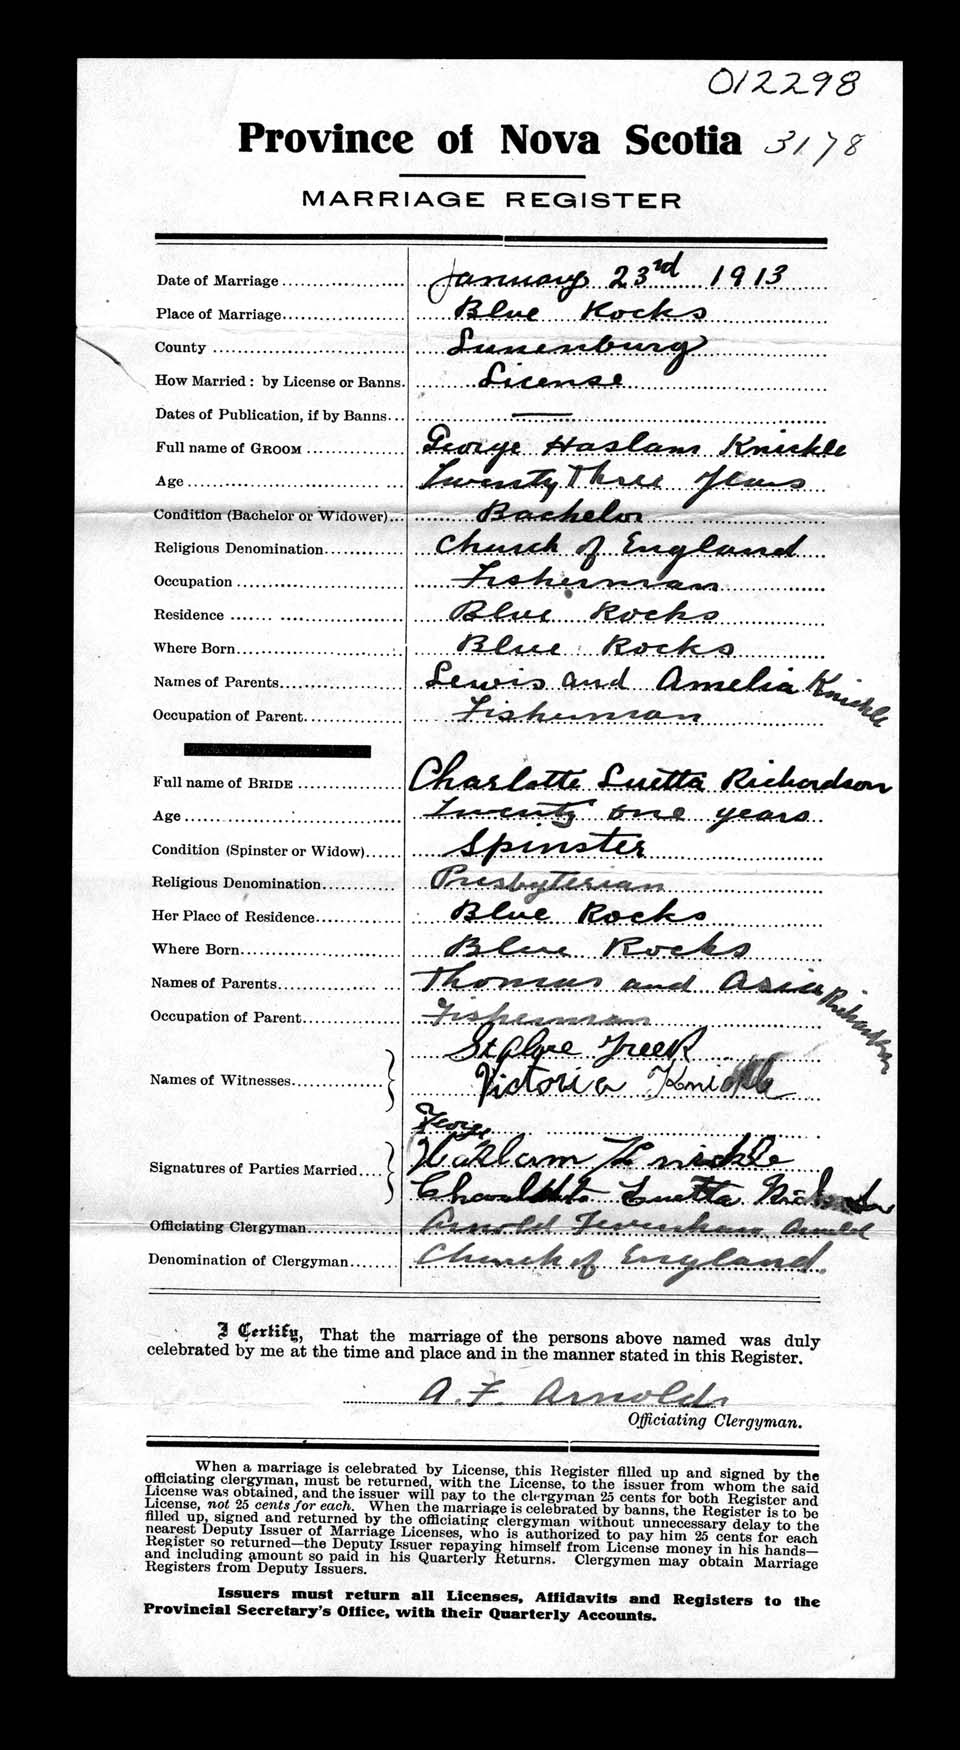 012298
Province of Nova Scotia 3178
MARRIAGE REGISTER
Date of Marriage January 23rd 1913
Place of Marriage Blue Rocks
County Lunenburg
How Married: by License or Banns. License
Dates of Publication, if by Banns —
Full name of GROOM George Haslam Knickle
Age Twenty Three Years
Condition (Bachelor or Widower) Bachelor
Religious Denomination Church of England
Occupation Fisherman
Residence Blue Rocks
Where Born Blue Rocks
Names of Parents Lewis and Amelia Knickle
Occupation of Parent Fisherman
Full name of BRIDE Charlotte Luetta Richardson
Age Twenty one years
Condition (Spinster or Widow) Spinster
Religious Denomination Presbyterian
Her Place of Residence Blue Rocks
Where Born Blue Rocks
Names of Parents Thomas and Richardson
Occupation of Parent Fisherman
Names of Witnesses
Victoria Knickle
George
Signatures of Parties Married Haslam Knickle
Luetta
Officiating Clergyman Arnold
Denomination of Clergyman Church of England.
I Certify, That the marriage of the persons above named was duly
celebrated by me at the time and place and in the manner stated in this Register.
A. F. Arnold
Officiating Clergyman.
When a marriage is celebrated by License, this Register filled up and signed by the
officiating clergyman, must be returned, with the License, to the issuer from whom the said
License was obtained, and the issuer will pay to the clergyman 25 cents for both Register and
License, not 25 cents for each. When the marriage is celebrated by banns, the Register is to be
filled up, signed and returned by the officiating clergyman without unnecessary delay to the
nearest Deputy Issuer of Marriage Licenses, who is authorized to pay him 25 cents for each
Register so returned—the Deputy Issuer repaying himself from License money in his hands—
and including amount so paid in his Quarterly Returns. Clergymen may obtain Marriage
Registers from Deputy Issuers.
Issuers must return all Licenses, Affidavits and Registers to the
Provincial Secretary's Office, with their Quarterly Accounts.